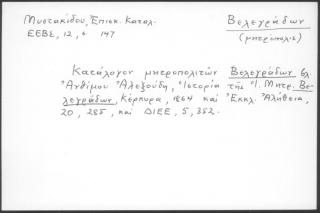 Μυστακίδου, Ἐπισκ. Καταλ.
ΕΕΒΣ, 12, σ 147
Βελεγράδων
(μητρόπολις)
Κατάλογον μητροπολιτῶν Βελεγράδων βλ.
Ἀνθίμου Ἀλεξούδη, Ἱστορία τῆς Ἱ. Μητρ. Βε-
λεγράδων, Κέρκυρα, 1864 καὶ Ἐκκλ. Ἀλήθεια,
20, 285, καὶ ΔΙΕΕ, 5, 352.